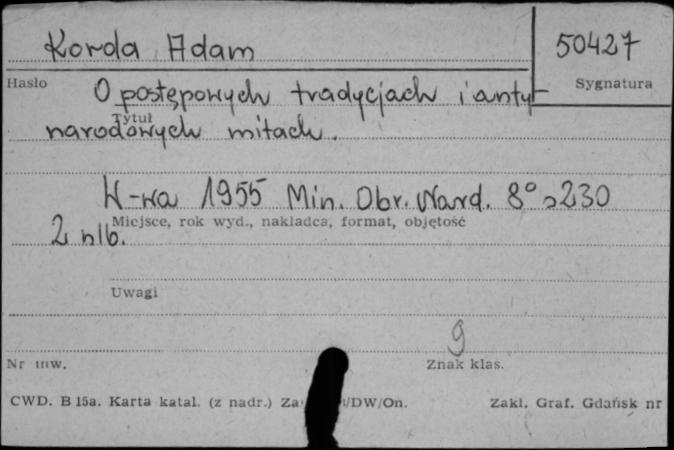 Korda Adam
50427
Hasło
Sygnatura
O postępowych tradycjach i anty-
Tytuł
narodowych mitach.
W-wa 1955 Min. Obr. Nard. 8° s 230
Miejsce, rok wyd., nakładca, format, objętość
2 nlb.
Uwagi
9
Nr inw.
Znak klas.
CWD. B 15a. Karta katal. (z nadr.) /DW/On.
Zakł. Graf. Gdańsk nr